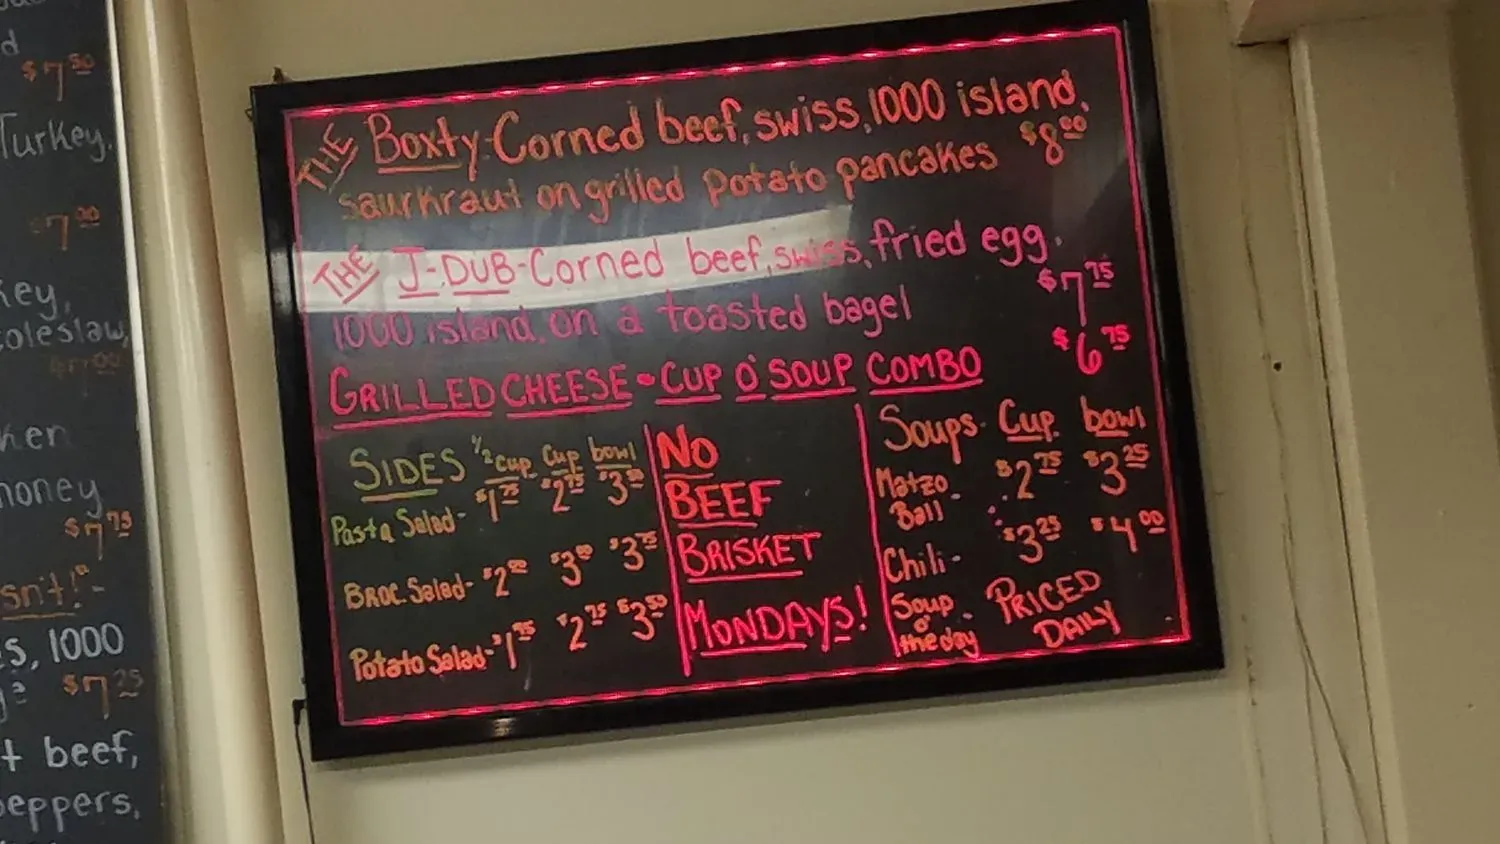 d
$7.50
Turkey,
$7.00
key,
coleslaw,
$7.00
ken
honey
$7.75
snit!"-
s, 1000
$7.25
t beef,
peppers,
THE Boxty-Corned beef, swiss, 1000 island,
saurkraut on grilled potato pancakes $8.00
THE J-DUB-Corned beef, swiss, fried egg,
1000 island, on a toasted bagel $7.75
GRILLED CHEESE - CUP O' SOUP COMBO $6.75
SIDES 1/2 cup Cup bowl
Pasta Salad- $1.75 $2.75 $3.50
BROC. Salad- $2.00 $3.00 $3.75
Potato Salad- $1.75 $2.75 $3.50
NO
BEEF
BRISKET
MONDAYS!
Soups- Cup bowl
Matzo
Ball - $2.75 $3.25
Chili- $3.25 $4.00
Soup
o'
the day - PRICED
DAILY